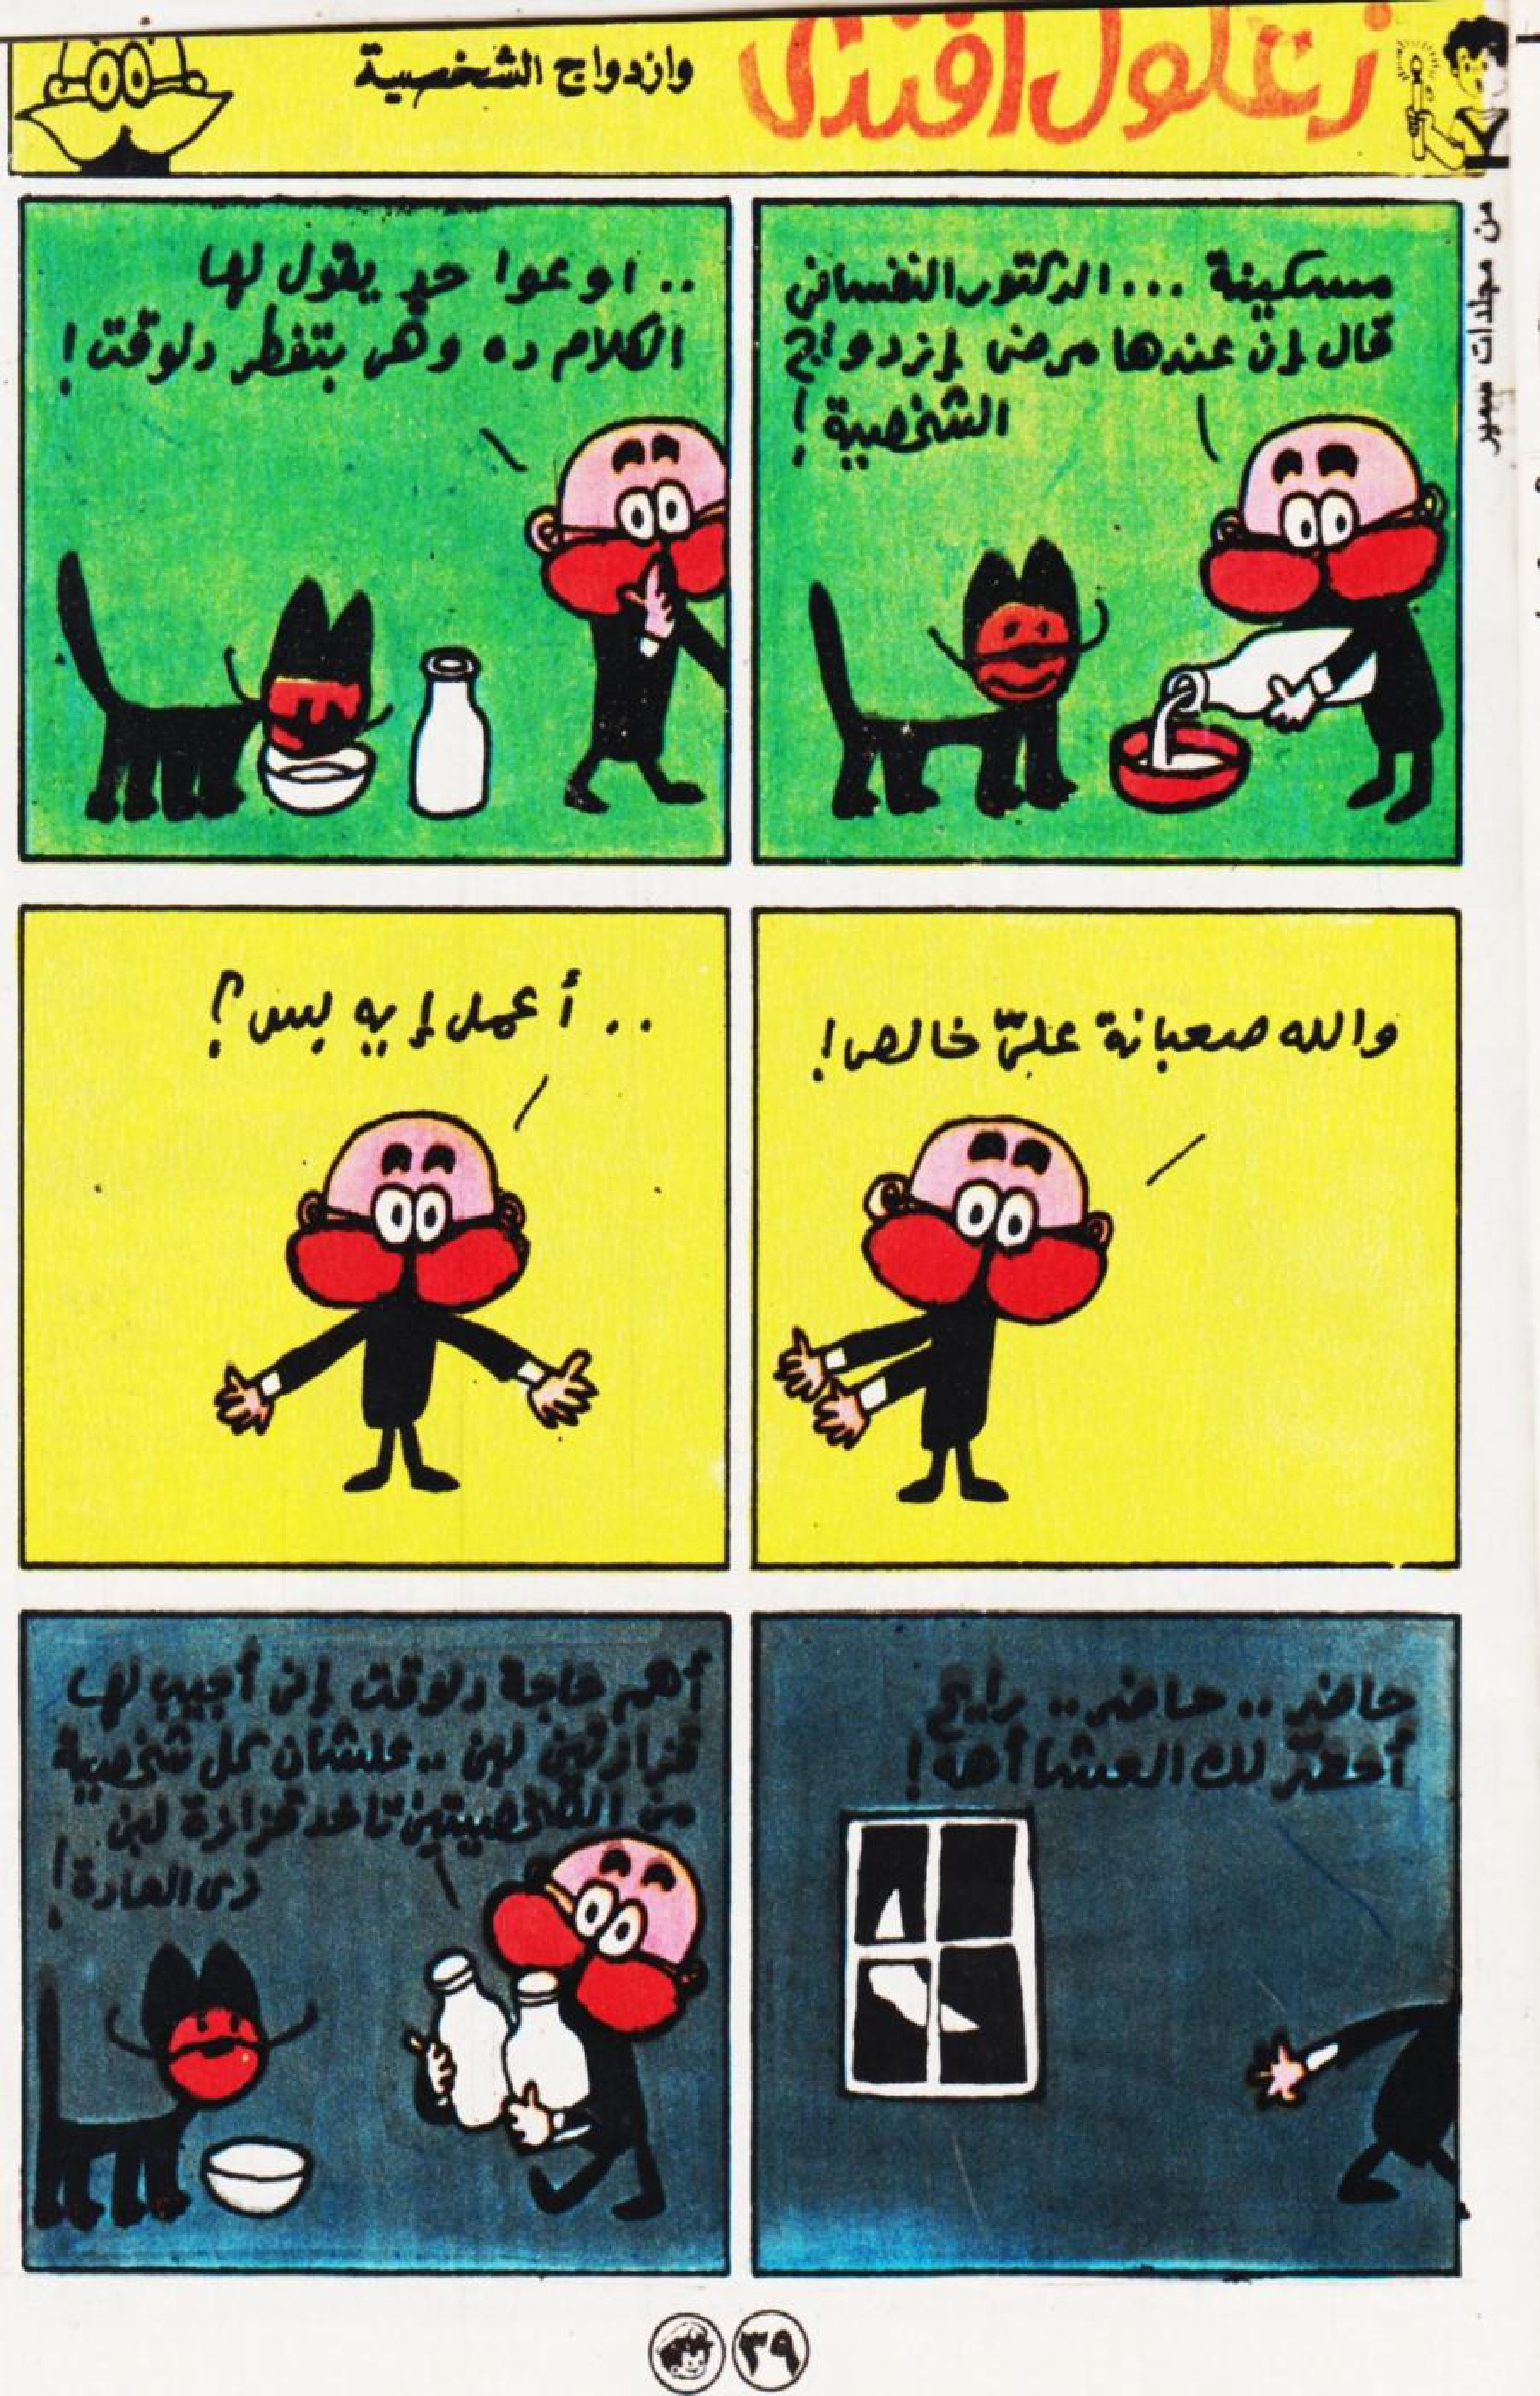 زغلول افندى
وازدواج الشخصية
من مجلدات سمير
مسكينة ... الدكتور النفسانى
قال إن عندها مرض إزدواج
الشخصية !
.. اوعوا حد يقول لها
الكلام ده وهى بتفطر دلوقت !
والله صعبانة علىّ خالص !
.. أعمل إيه بس ؟
حاضر .. حاضر .. رايح
أحضّر لك العشا أهه !
أهم حاجة دلوقت إنى أجيب لها
قزازتين لبن .. علشان كل شخصية
من الشخصيتين تاخد قزازة لبن
زى العادة !
٣٩